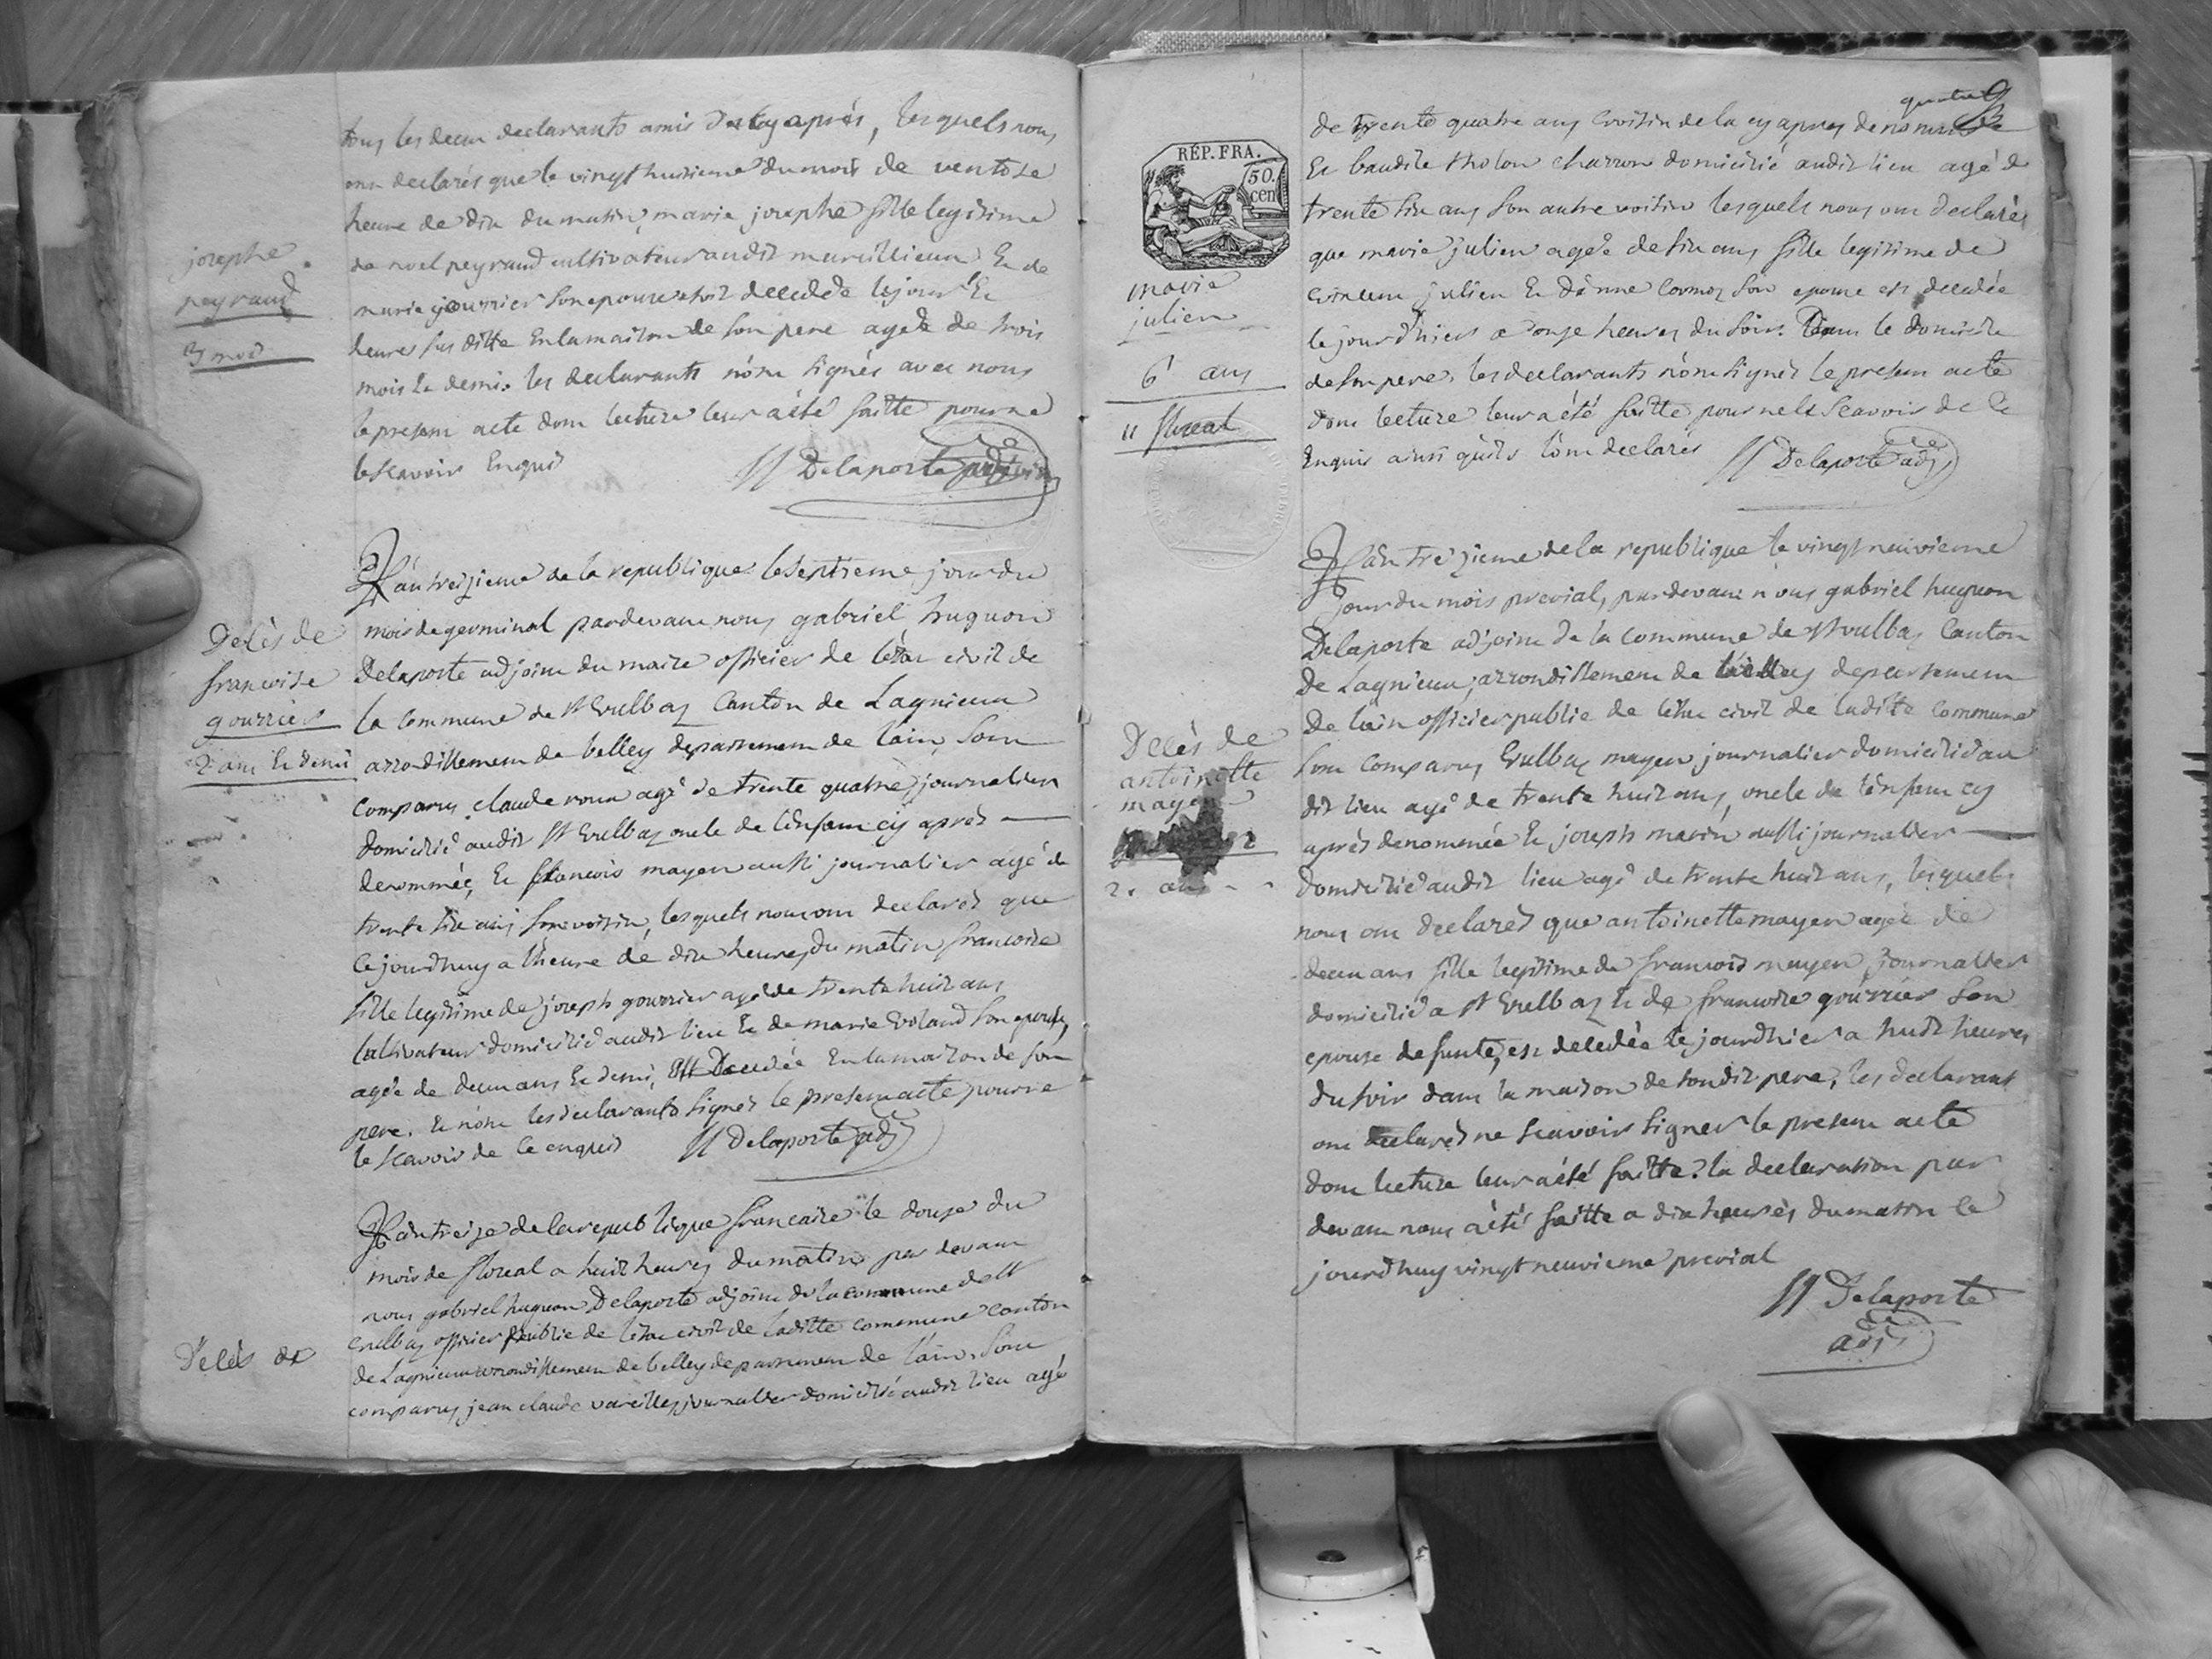 tous les deux declarants amis de cy après, lesquels nous
ont declarés que le vingt huitieme du mois de ventose
heure de dix du matin, marie josephe fille legitime
de noel peyraud cultivateur audit marcillieux Et de
marie gourrier son epouse decedée le jour Et
heure sus ditte En la maison de son pere agée de trois
mois Et demi. les declarants n'ont signés avec nous
le present acte dont lecture leur a été faitte pour ne
le scavoir Enquis
Delaporte adjoint
josephe
peyraud
3 mois
L'an treizieme de la republique le septieme jour du
mois de germinal pardevant nous gabriel huguon
Delaporte adjoint du maire officier de l'état civil de
la commune de St Vulbaz Canton de Lagnieux
arrondissement de belley departement de lain, sont
comparus claude roux agé de trente quatre, journalier
domicilié audit St Vulbaz oncle de l'enfant cy après
denommée, Et francois mayen aussi journalier agé de
trente six ans son voisin, lesquels nous ont declarés que
cejourdhuy a l'heure de dix heures du matin francoise
fille legitime de joseph gourrier agé de trente huit ans
Cultivateur domicilié audit lieu Et de marie Evoland son epouse,
agée de deux ans Et demi, Est Decedée En la maison de son
pere. Et n'ont les declarants signés le present acte pour ne
le scavoir de ce enquis
Delaporte adj
Decès de
francoise
gourrier
2 ans Et demi
L'an treize de la republique francaise le douze du
mois de floreal a huit heures du matin par devant
nous gabriel huguon Delaporte adjoint de la commune de St
Vulbaz officier publie de l'état civil de laditte commune canton
de Lagnieux arrondissement de belley departement de lain. sont
comparus jean claude vareilles journalier domicilié audit lieu agé
Decès de
quatre
de trente quatre ans voisin de la cy apres denommée
Et baudile tholon charron domicilié audit lieu agé de
trente six ans son autre voisin lesquels nous ont declarés
que marie julien agée de six ans fille legitime de
julien Et son epouse est decedée
le jourdhier a onze heures du soir. Dans le domicile
de son pere, les declarants n'ont signés le present acte
dont lecture leur a été faitte pour ne le Scavoir de ce
Enquis ainsi qu'ils l'ont declarés
Delaporte adj
RÉP. FRA.
50.
cen
marie
julien
6 ans
11 floreal
L'an treizieme de la republique le vingt neuvieme
jour du mois prerial, pardevant nous gabriel huguon
Delaporte adjoint de la commune de St vulbaz Canton
de Lagnieux, arrondissement de belley departement
De lain officier publie de l'état civil de laditte commune
sont comparus Vulbaz mayen journalier domicilié au
dit lieu agé de trente huit ans, oncle de l'enfant cy
après denommée Et joseph marin aussi journalier
domicilié audit lieu agé de trente huit ans, lesquels
nous ont declarés que antoinette mayen agée de
deux ans fille legitime de francois mayen journalier
domicilié a St Vulbaz Et de francoise gourrier son
epouse defunte, est decedée le jourdhier a huit heures
du soir dans la maison de sondit pere, les declarant
ont declarés ne scavoir signer le present acte
dont lecture leur a été faitte. la declaration par
devant nous a été faitte a dix heures du matin le
jourdhuy vingt neuvieme prerial
Delaporte
adj
Decès de
antoinette
mayen
2. ans